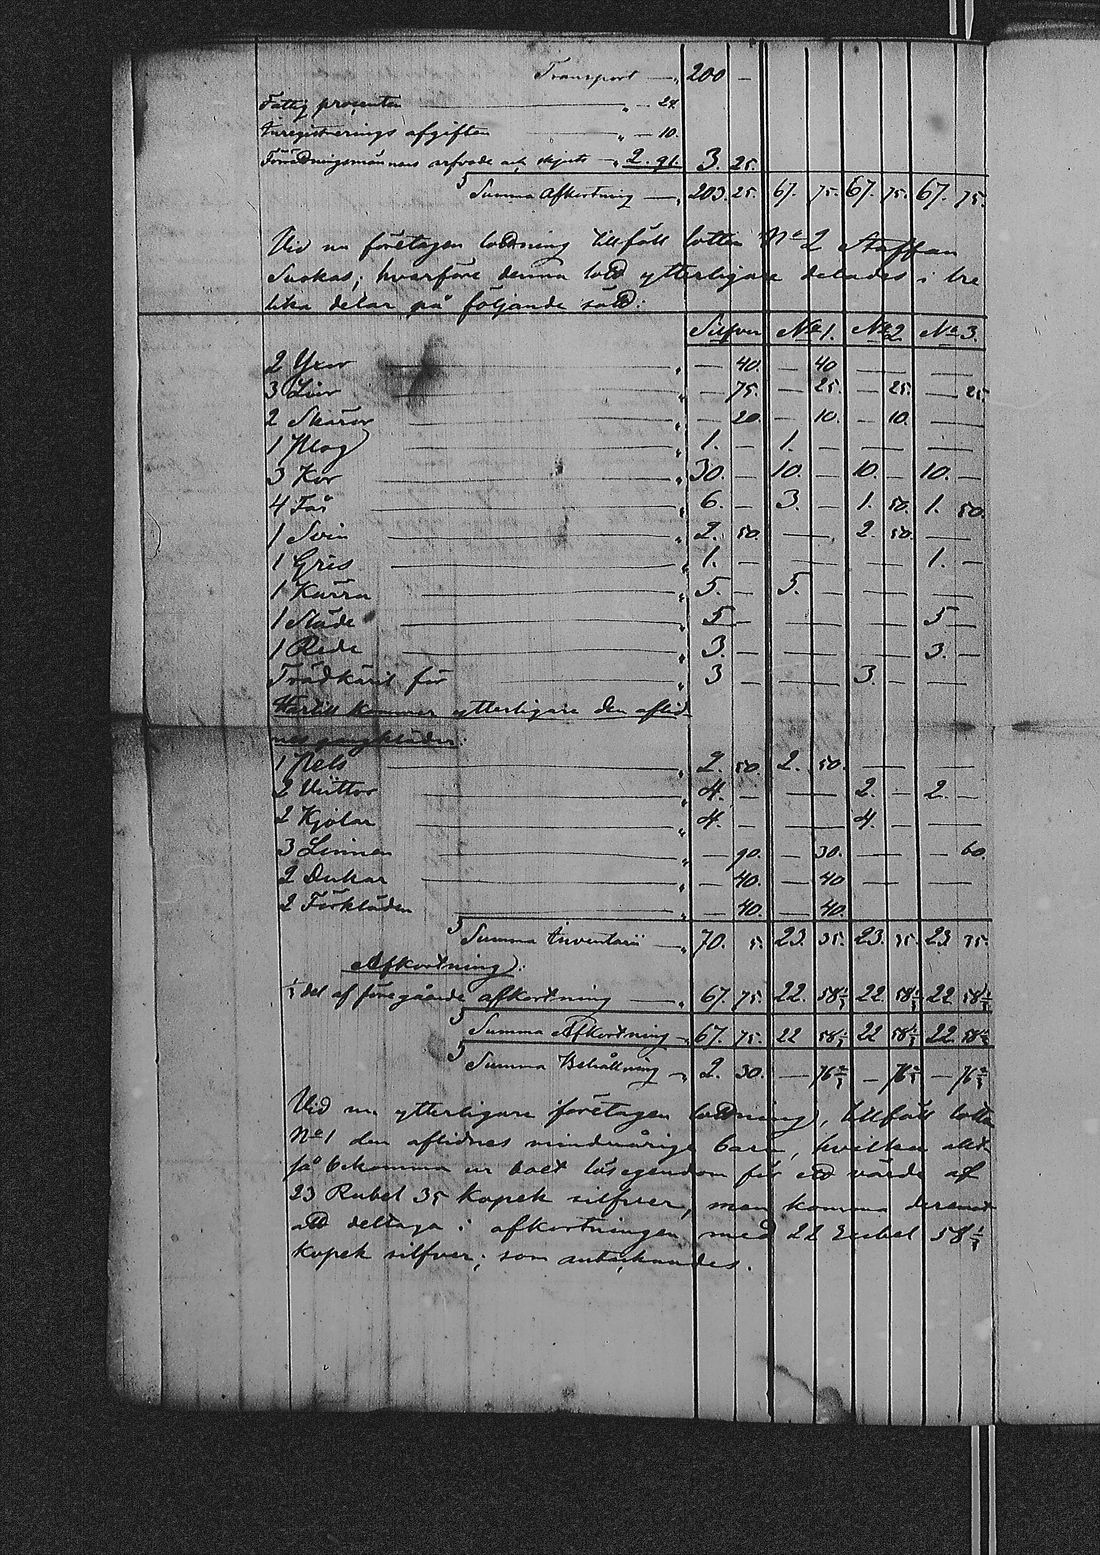 Transport — „ 200 —
Fattig procenten — „ — 24.
Inregistrerings afgiften — „ — 10.
Förrättningsmännens arfvode och skjuts — „ 2. 91. 3. 25.
Summa Afkortning — „ 203. 25. 67. 75. 67. 75. 67. 75.
Vid nu företagen lottning tillföll lotten No 2 Staffan
hvarföre denna lott ytterligare delades i tre
lika delar på följande sätt:
Silfver No 1. No 2. No 3.
2 Yxor „ — 40. — 40 — — — —
3 Liar „ — 75. — 25. — 25. — 25.
2 Skäror „ — 20. — 10. — 10. — —
1 Plog „ 1. — 1. — — — — —
3 Kor „ 30. — 10. — 10. — 10. —
4 Får „ 6. — 3. — 1. 50. 1. 50.
1 Svin „ 2. 50. — — 2. 50. — —
1 Gris „ 1. — — — — — 1. —
1 Kärra „ 5. — 5. — — — — —
1 Släde „ 5 — — — — — 5 —
1 Rede „ 3. — — — — — 3. —
Trädkäril för „ 3 — — — 3. — — —
Härtill kommer ytterligare den aflid
nes gångkläder:
1 Pels „ 2. 50. 2. 50. — — — —
2 Tröttor „ 4. — — — 2. — 2. —
2 Kjolar „ 4. — — — 4. — — —
3 Linnen „ — 90. — 30. — — — 60.
2 Dukar „ — 40. — 40 — — — —
2 Förkläden „ — 40. — 40.
Summa Inventarii — „ 70. 5. 23. 35. 23. 35. 23. 35.
Afkortning:
1/3 del af föregående afkortning — „ 67. 75. 22. 58 1/3 22 58 1/3 22 58 1/3
Summa Afkortning — 67. 75. 22 58 1/3 22 58 1/3 22. 58 1/3
Summa Behållning — „ 2. 30. — 76 2/3 — 76 2/3 — 76 2/3
Vid nu ytterligare företagen lottning, tillföll lotten
No 1 den aflidnes minderåriga barn, hvilka altså
få bekomma ur boet lösegendom för ett värde af
23 Rubel 35 kopek silfver, men komma deremot
att deltaga i afkortningen med 22 Rubel 58 1/3
kopek silfver; som antecknades.